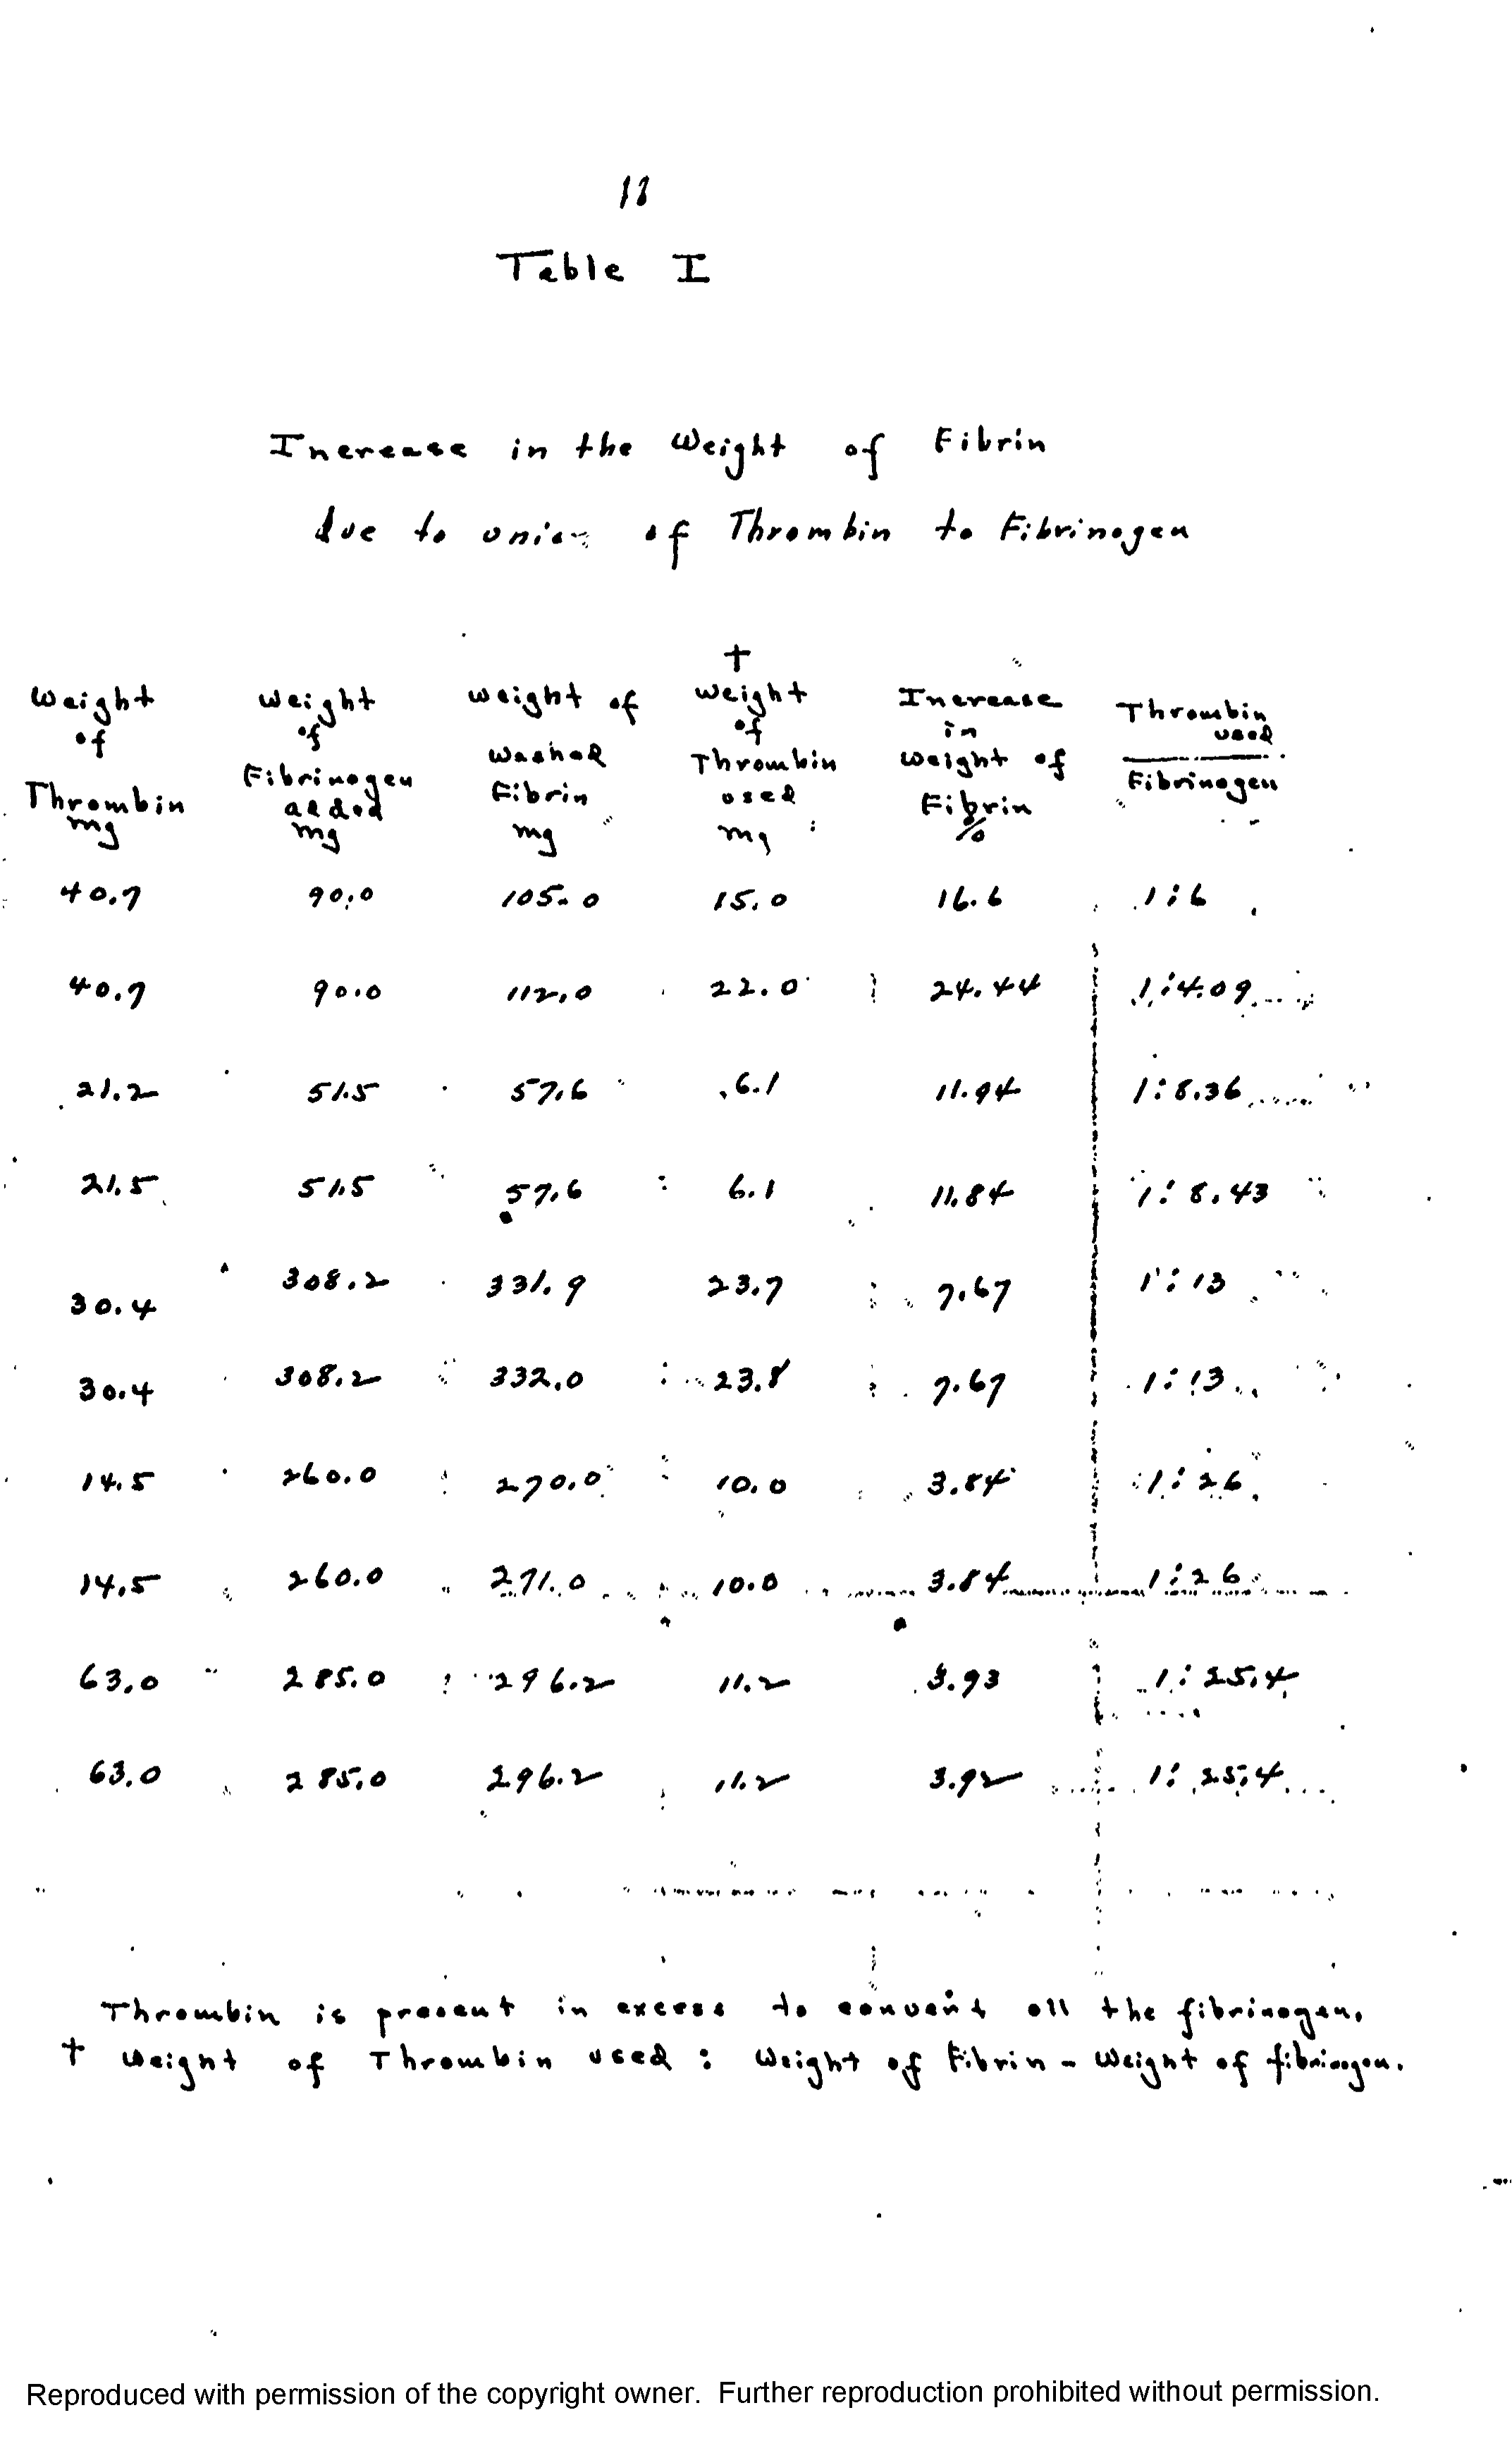 11
Table I
Increase in the Weight of Fibrin
due to union of Thrombin to Fibrinogen
Weight of Thrombin mg | Weight of Fibrinogen added mg | Weight of Washed Fibrin mg | † Weight of Thrombin used mg | Increase in Weight of Fibrin % | Thrombin used / Fibrinogen
40.7 90.0 105.0 15.0 16.6 1:6
40.7 90.0 112.0 22.0 24.44 1:4.09
21.2 51.5 57.6 6.1 11.94 1:8.36
21.5 51.5 57.6 6.1 11.84 1:8.43
30.4 308.2 331.9 23.7 7.67 1:13
30.4 308.2 332.0 23.8 7.67 1:13
14.5 260.0 270.0 10.0 3.84 1:26
14.5 260.0 271.0 10.0 3.84 1:26
63.0 285.0 296.2 11.2 3.93 1:25.4
63.0 285.0 296.2 11.2 3.92 1:25.4
Thrombin is present in excess to convert all the fibrinogen.
† Weight of Thrombin used : Weight of Fibrin - Weight of fibrinogen.
Reproduced with permission of the copyright owner. Further reproduction prohibited without permission.